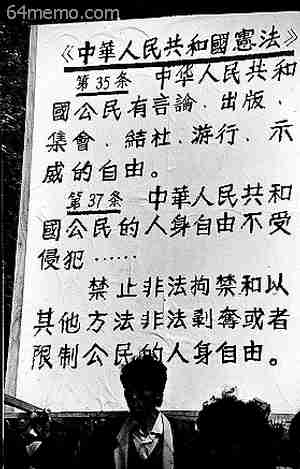 64memo.com
《中華人民共和國憲法》
第35条 中华人民共和
國公民有言論、出版、
集會、結社、游行、示
威的自由。
第37条 中華人民共和
國公民的人身自由不受
侵犯……
禁止非法拘禁和以
其他方法非法剥奪或者
限制公民的人身自由。